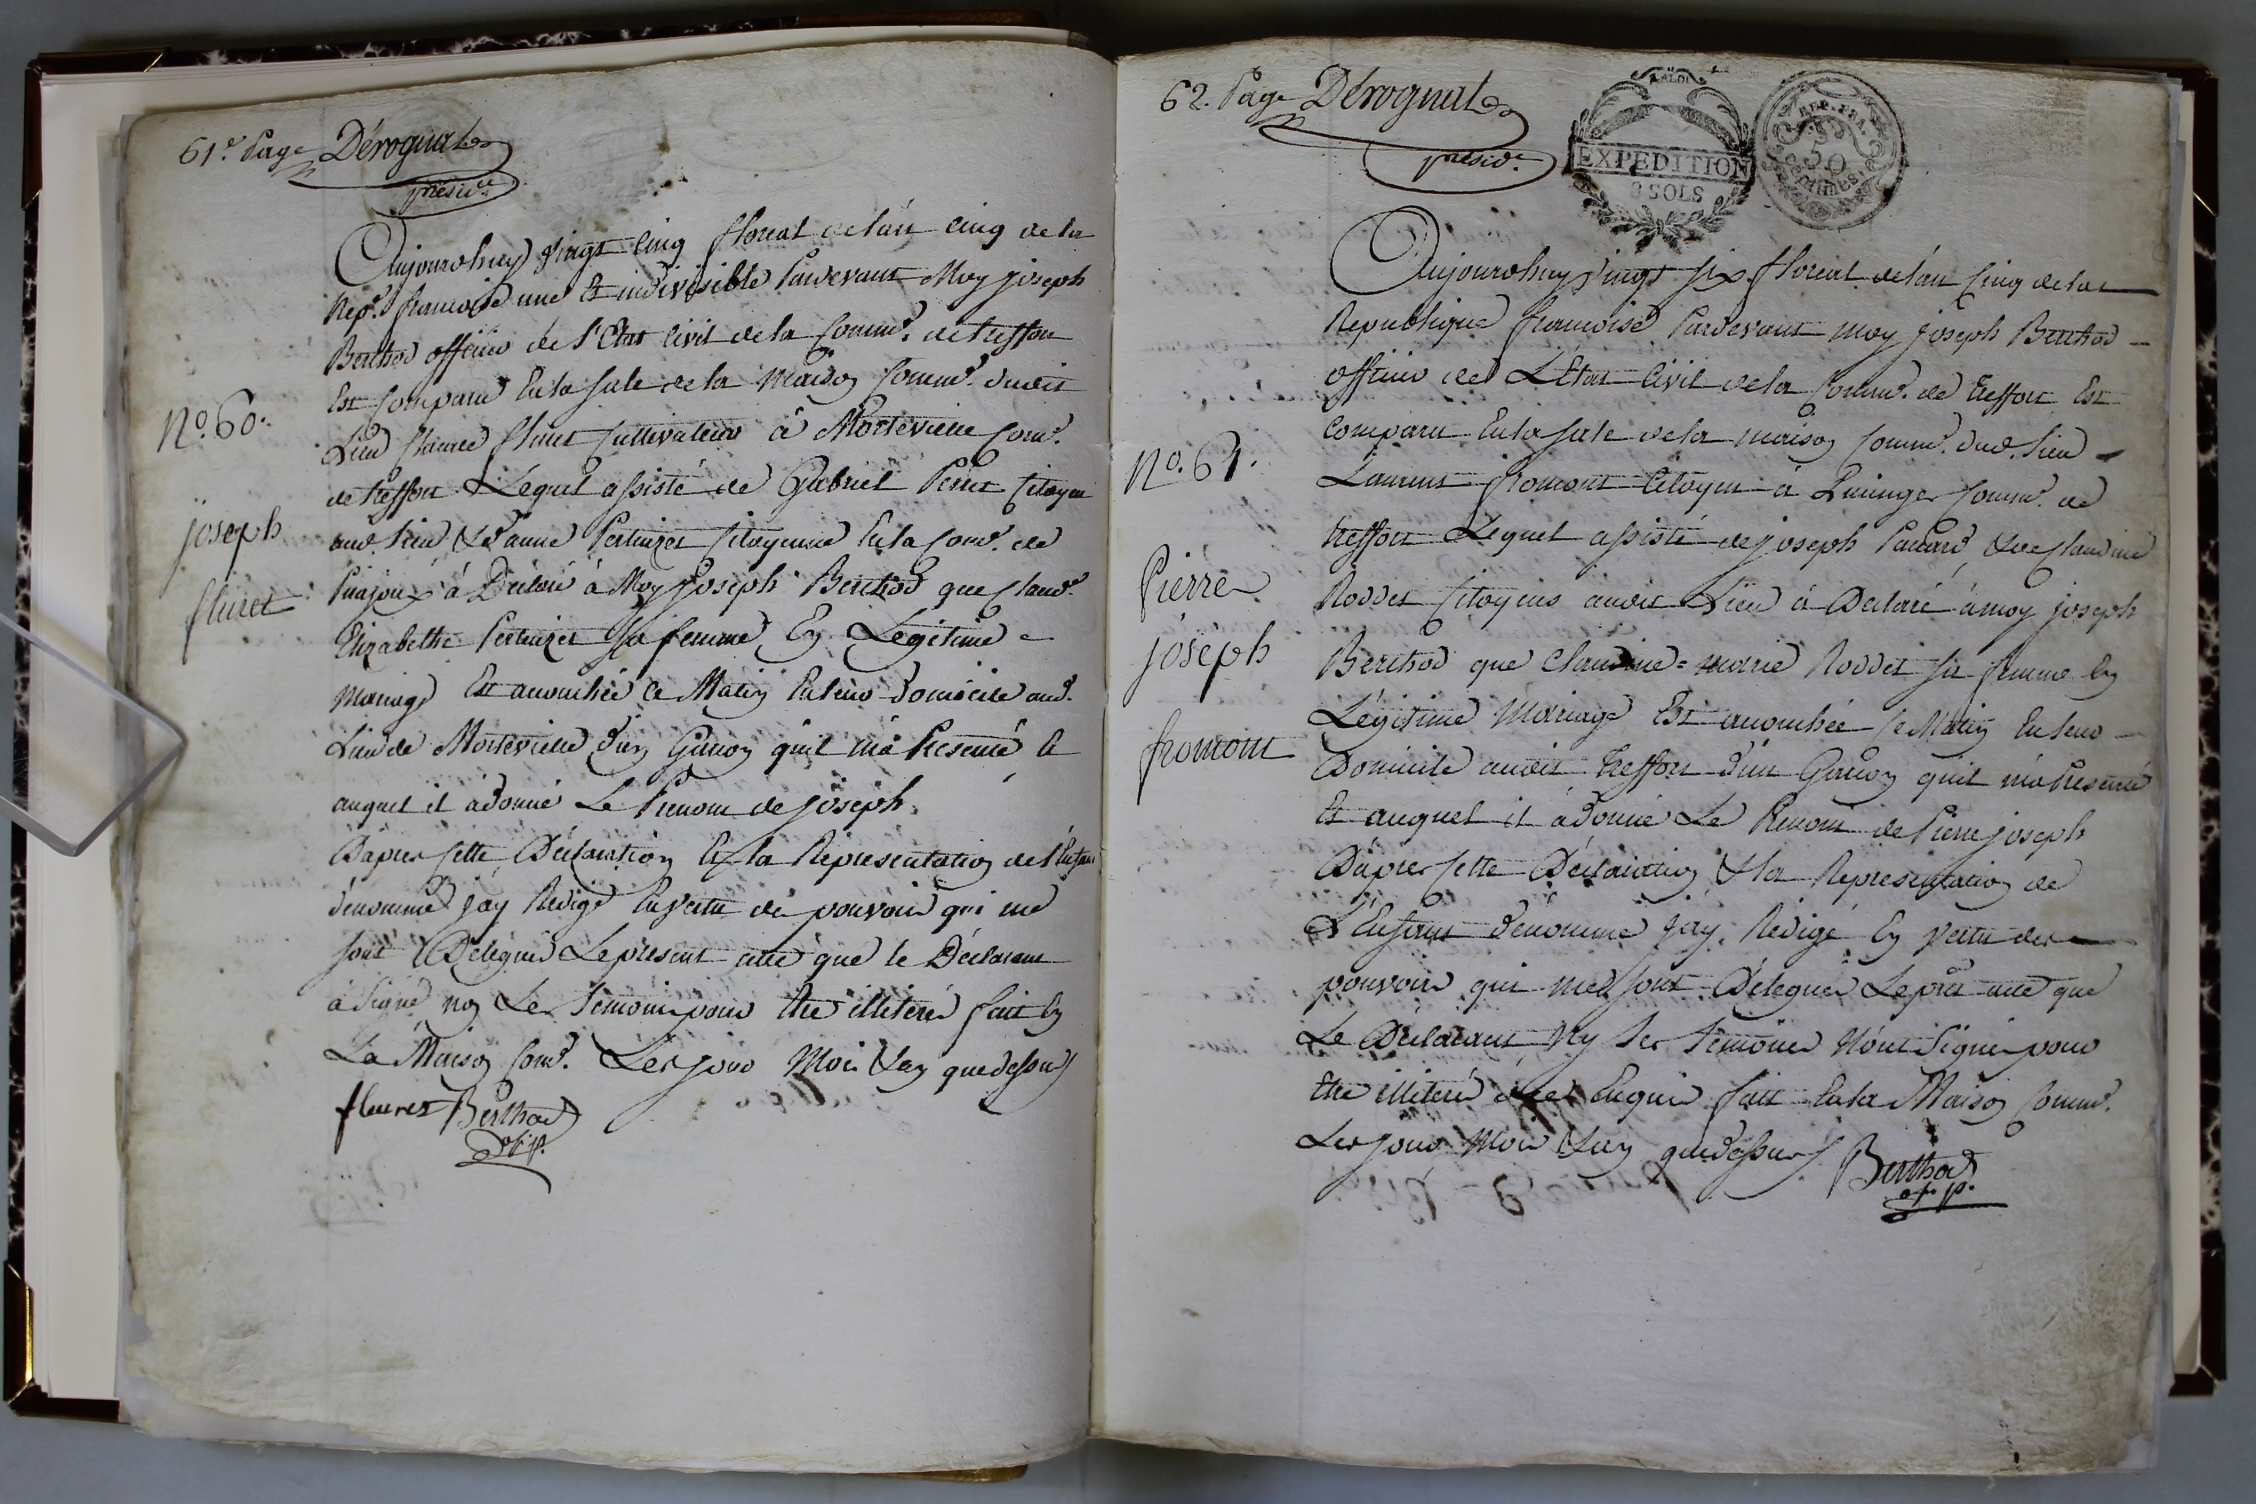 61e. Page Dérognat
présidt.
Aujourdhuy vingt Cinq floreal de lan cinq de la
Rep.e francoise une Et indivisible Pardevant Moy joseph
Berthod officier de l'Etat Civil de la Comm.e de treffort
Est Comparu En la sale de la Maison Comm.e dudit
No. 60.
Lieu Claude fluret Cultivateur à Montevieille Com.e
de treffort Lequel assisté de Gabriel Perret Citoyen
joseph
aud. lieu & d'anne Pertuizet Citoyenne En la Com.e de
fluret
à Déclaré à Moy Joseph Berthod que Claud.e
Elizabethe Pertuizet Sa femme En Legitime
Mariage Est acouchée ce Matin En leur domicile aud.
Lieu de Montevieille d'un Garçon quil m'a Presenté &
auquel il à donné Le Prenom de joseph.
D'apres Cette Déclaration & la Representation de l'Enfant
dénommé jay Rédigé En vertu des pouvoirs qui me
sont Délégués Le present acte que le Déclarant
à Signé non Les Temoins pour être illiterés fait En
La Maison Com.e Les jour Mois & an que dessus
fleuret Berthod
of. p.
62. Page Dérognat
présidt.
EXPEDITION
8 SOLS
REP. FRA.
50
centimes
Aujourdhuy vingt six floreal de lan Cinq de la
Republique francoise Pardevant moy joseph Berthod
officier de L'Etat Civil de la Comm.e de treffort Est
Comparu En la sale de la maison Comm.e dud. lieu
No. 61.
Laurent fromont Citoyen à Comm.e de
treffort Lequel assisté de joseph & de Claudine
Pierre
Roddet Citoyens audit Lieu à Déclaré à moy joseph
joseph
Berthod que Claudine=marie Roddet sa femme En
Légitime Mariage Est acouchée Ce Matin En leur
fromont
Domicile audit treffort d'un Garçon quil m'a Presenté
Et auquel il à donné Le Prenom de Pierre joseph
D'apres Cette Déclaration & la Representation de
L'Enfant dénommé jay Rédigé En vertu des
pouvoirs qui me sont Délégués Le prést acte que
Le Déclarant Ny Les Temoins N'ont Signé pour
être illiterés de ce Enquis fait En la Maison Comm.e
Les jour Mois & an que dessus Berthod
of. p.